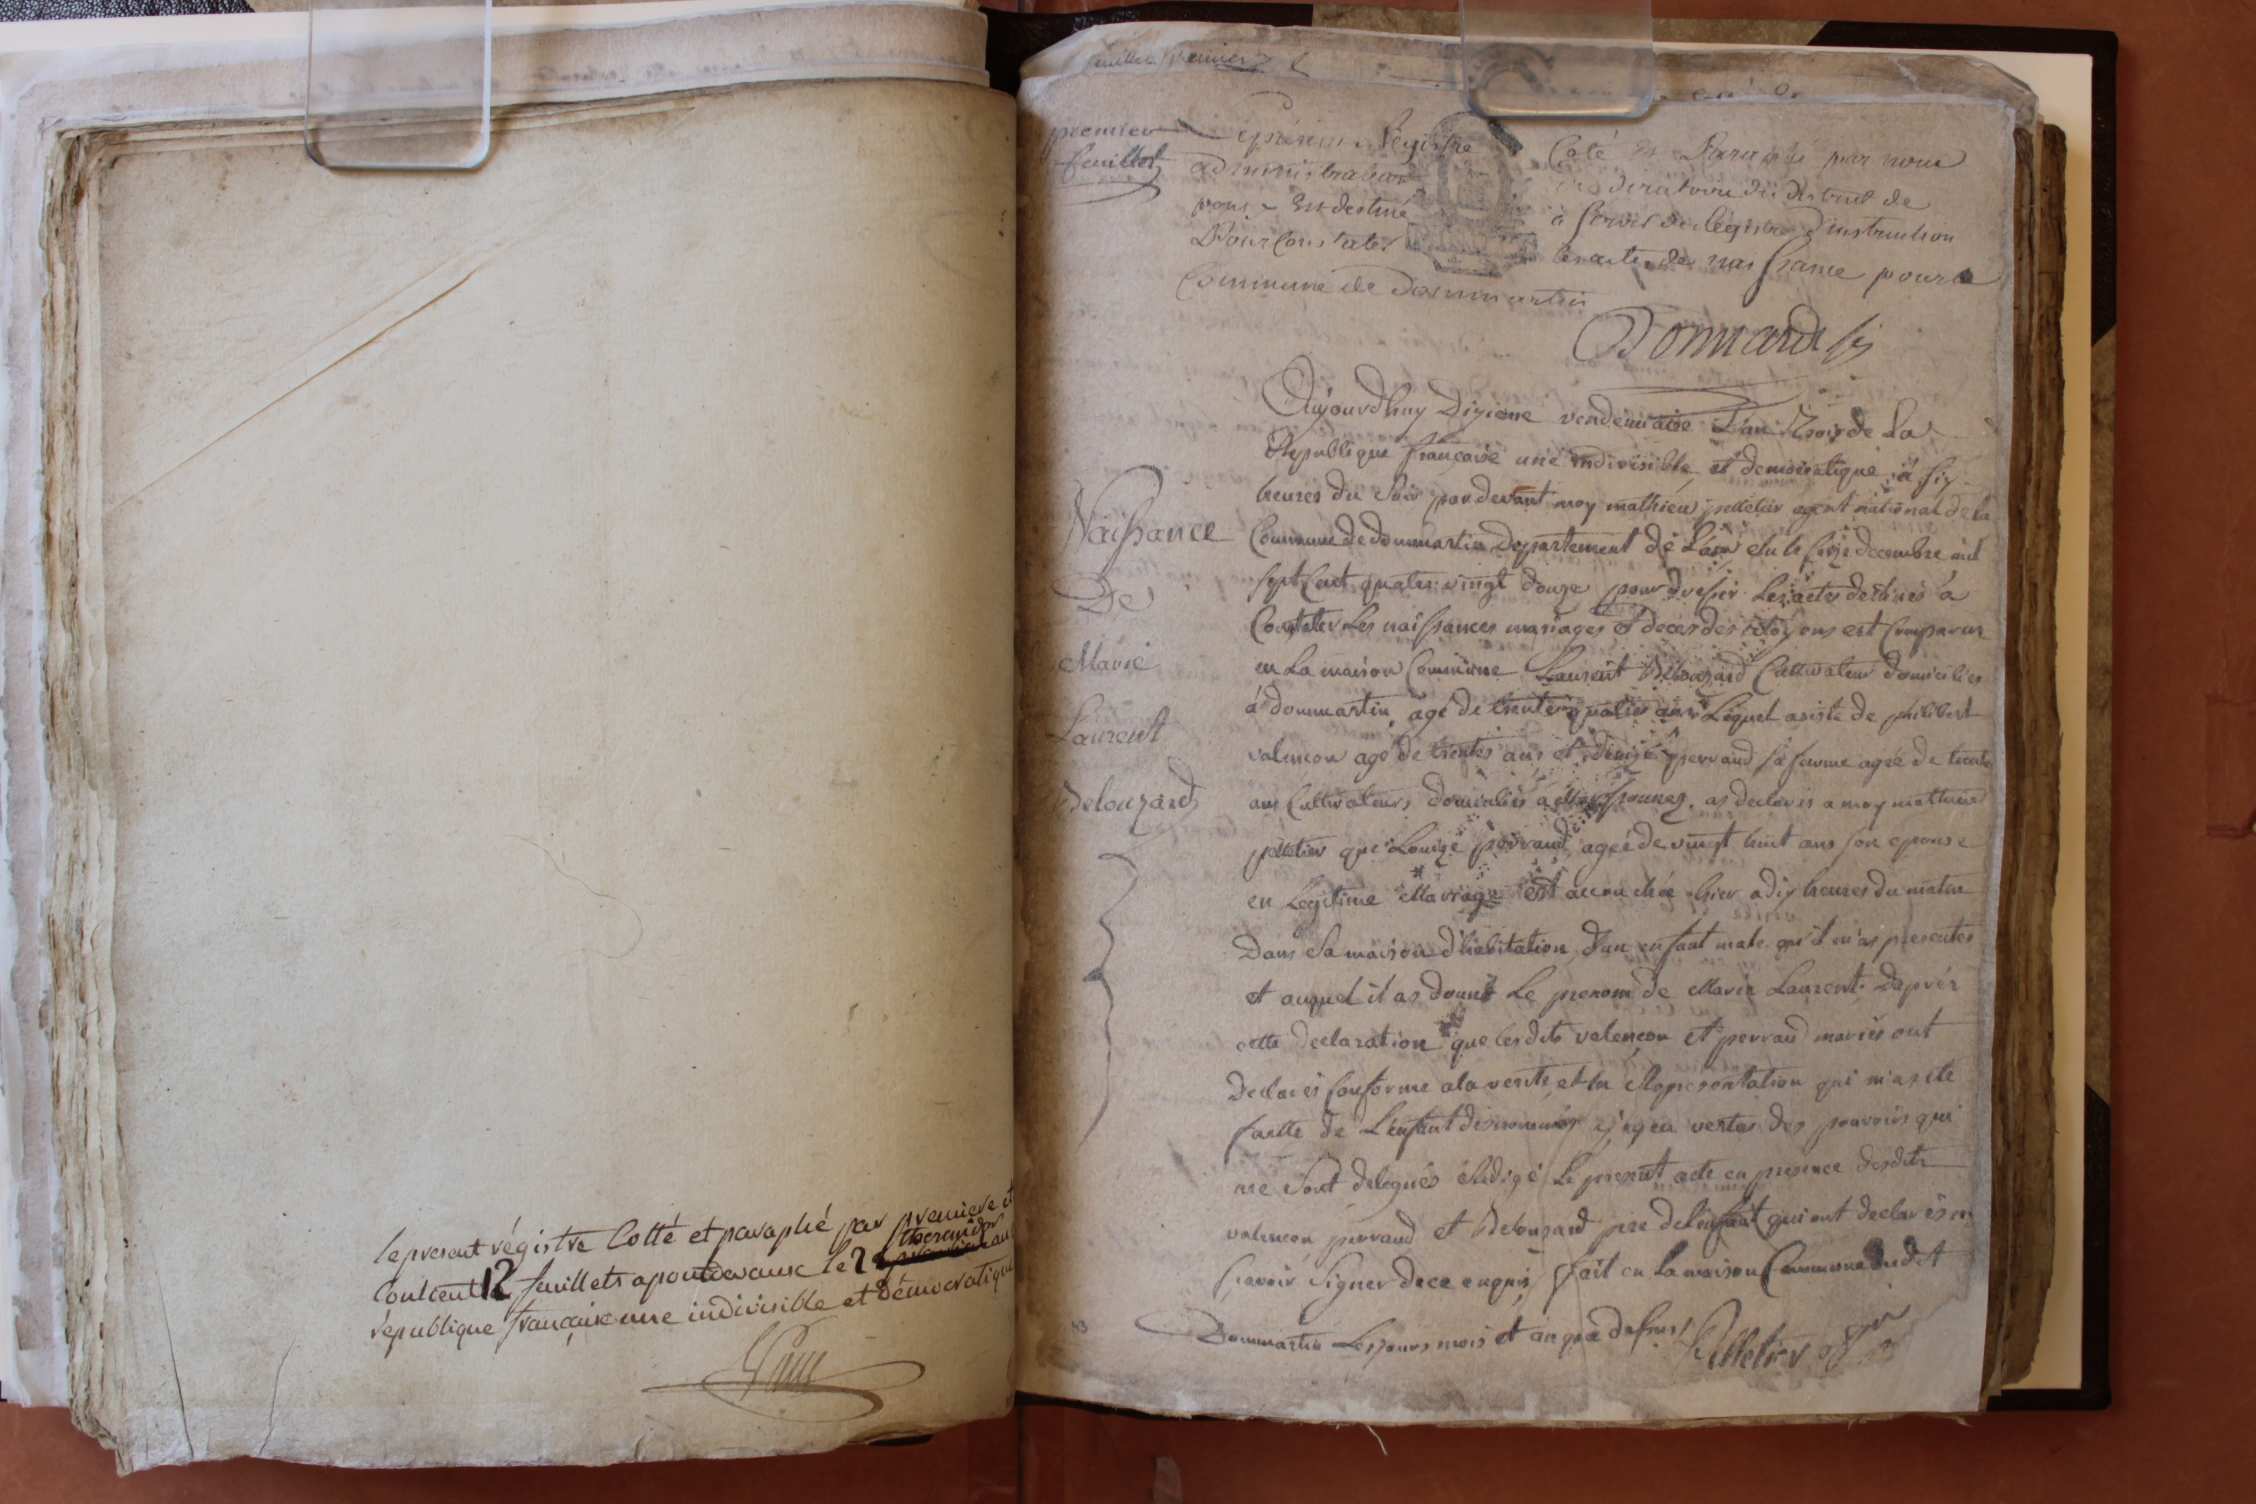 le present régistre Cotté et paraphé par premiere et
Contient 12 feuillets a pontdevaux le 2 thermidor
république française une indivisible et démocratique
feuillet premier
premier
feuillet
Le présent Registre
Coté et Paraphé par nous
administrateur
du directoire du district de
pont - Est destiné
à servir de Régistre d'instruction
Pour Constater
les actes de naissance pour la
Commune de dommartin
Aujourdhuy Dixieme vendemiaire L'an Trois de La
Republique française une indivisible et democratique a six
heures du Soir par devant moy mathieu pelletier agent national de la
Naissance
Commune de dommartin Departement de L'ain elu le seize decembre mil
sept Cent quatre vingt douze pour dresser Les actes destinés a
De
Constater Les naissances mariages et deces des citoyens est Comparus
Marie
en La maison Commune Laurent Debouzard Cultivateur domicilies
Laurent
á dommartin agé de trente quatre ans Lequel asisté de philibert
valencon agé de trentes ans et denise perraud sa femme agée de trente
Debouzard
ans Cultivateurs domicilies a as declaris a moy mathieu
pelletier que Louize perraud ageé de vingt huit ans son epouse
en Legitime Mariage est accouchée hier a dix heures du matin
Dans Sa maison d'habitation d'un enfant male qu'il m'as presentes
et auquel il as donné Le prenom de Marie Laurent D'aprés
cette declaration que lesdits valençon et perraud mariés ont
Declarés Conforme a la verité et la Representation qui m'as été
faitte de L'enfant denommés j'ay en vertus des pouvoirs qui
me Sont delegués Redigé Le present acte en presence desdits
valencon perraud et Debouzard pere de l'enfant qui ont declarés ne
scavoir Signer de ce enquis fait en La maison Commune dudit
Dommartin Les jours mois et an que dessus Pelletier